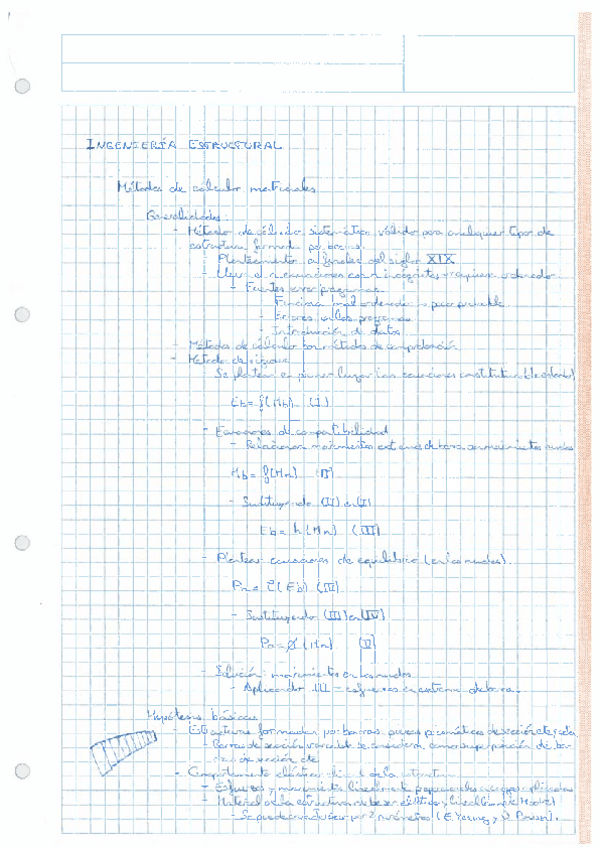 INGENIERÍA ESTRUCTURAL
Métodos de cálculo matriciales
Generalidades:
- Método de cálculo sistemático válido para cualquier tipo de
estructura formada por barras.
- Planteamiento a finales del siglo XIX
- Lleva a n ecuaciones con n incógnitas requiere ordenador
- Fuentes error programas
- Funciona mal ordenador poco probable
- Errores en los programas
- Introducción de datos
- Métodos de cálculo son métodos de comprobación
- Método de rigidez
Se plantean en primer lugar las ecuaciones
Eb = f(Mb) (I)
- Ecuaciones de compatibilidad
- Relacionan movimientos extremo de barra con movimientos nudos
Mb = g(Mn) (II)
- Sustituyendo (II) en (I)
Eb = h(Mn) (III)
- Plantear ecuaciones de equilibrio (en los nudos).
Pn = (Eb) (IV)
- Sustituyendo (III) en (IV)
Pn = Ø(Mn) (V)
- Solución: movimientos en los nudos
- Aplicando III - esfuerzos en extremo de barra.
Hipótesis básicas
- Estructuras formadas por barras, piezas prismáticas de sección cte, recta
- Barras de sección variable se consideran como superposición de ba-
rras de sección cte
- Comportamiento elástico lineal de la estructura
- Esfuerzos y movimientos linealmente proporcionales a cargas aplicadas
- Material de la estructura elástico y lineal (Ley de Hooke)
- Se puede por 2 parámetros (E. Young y Poisson).